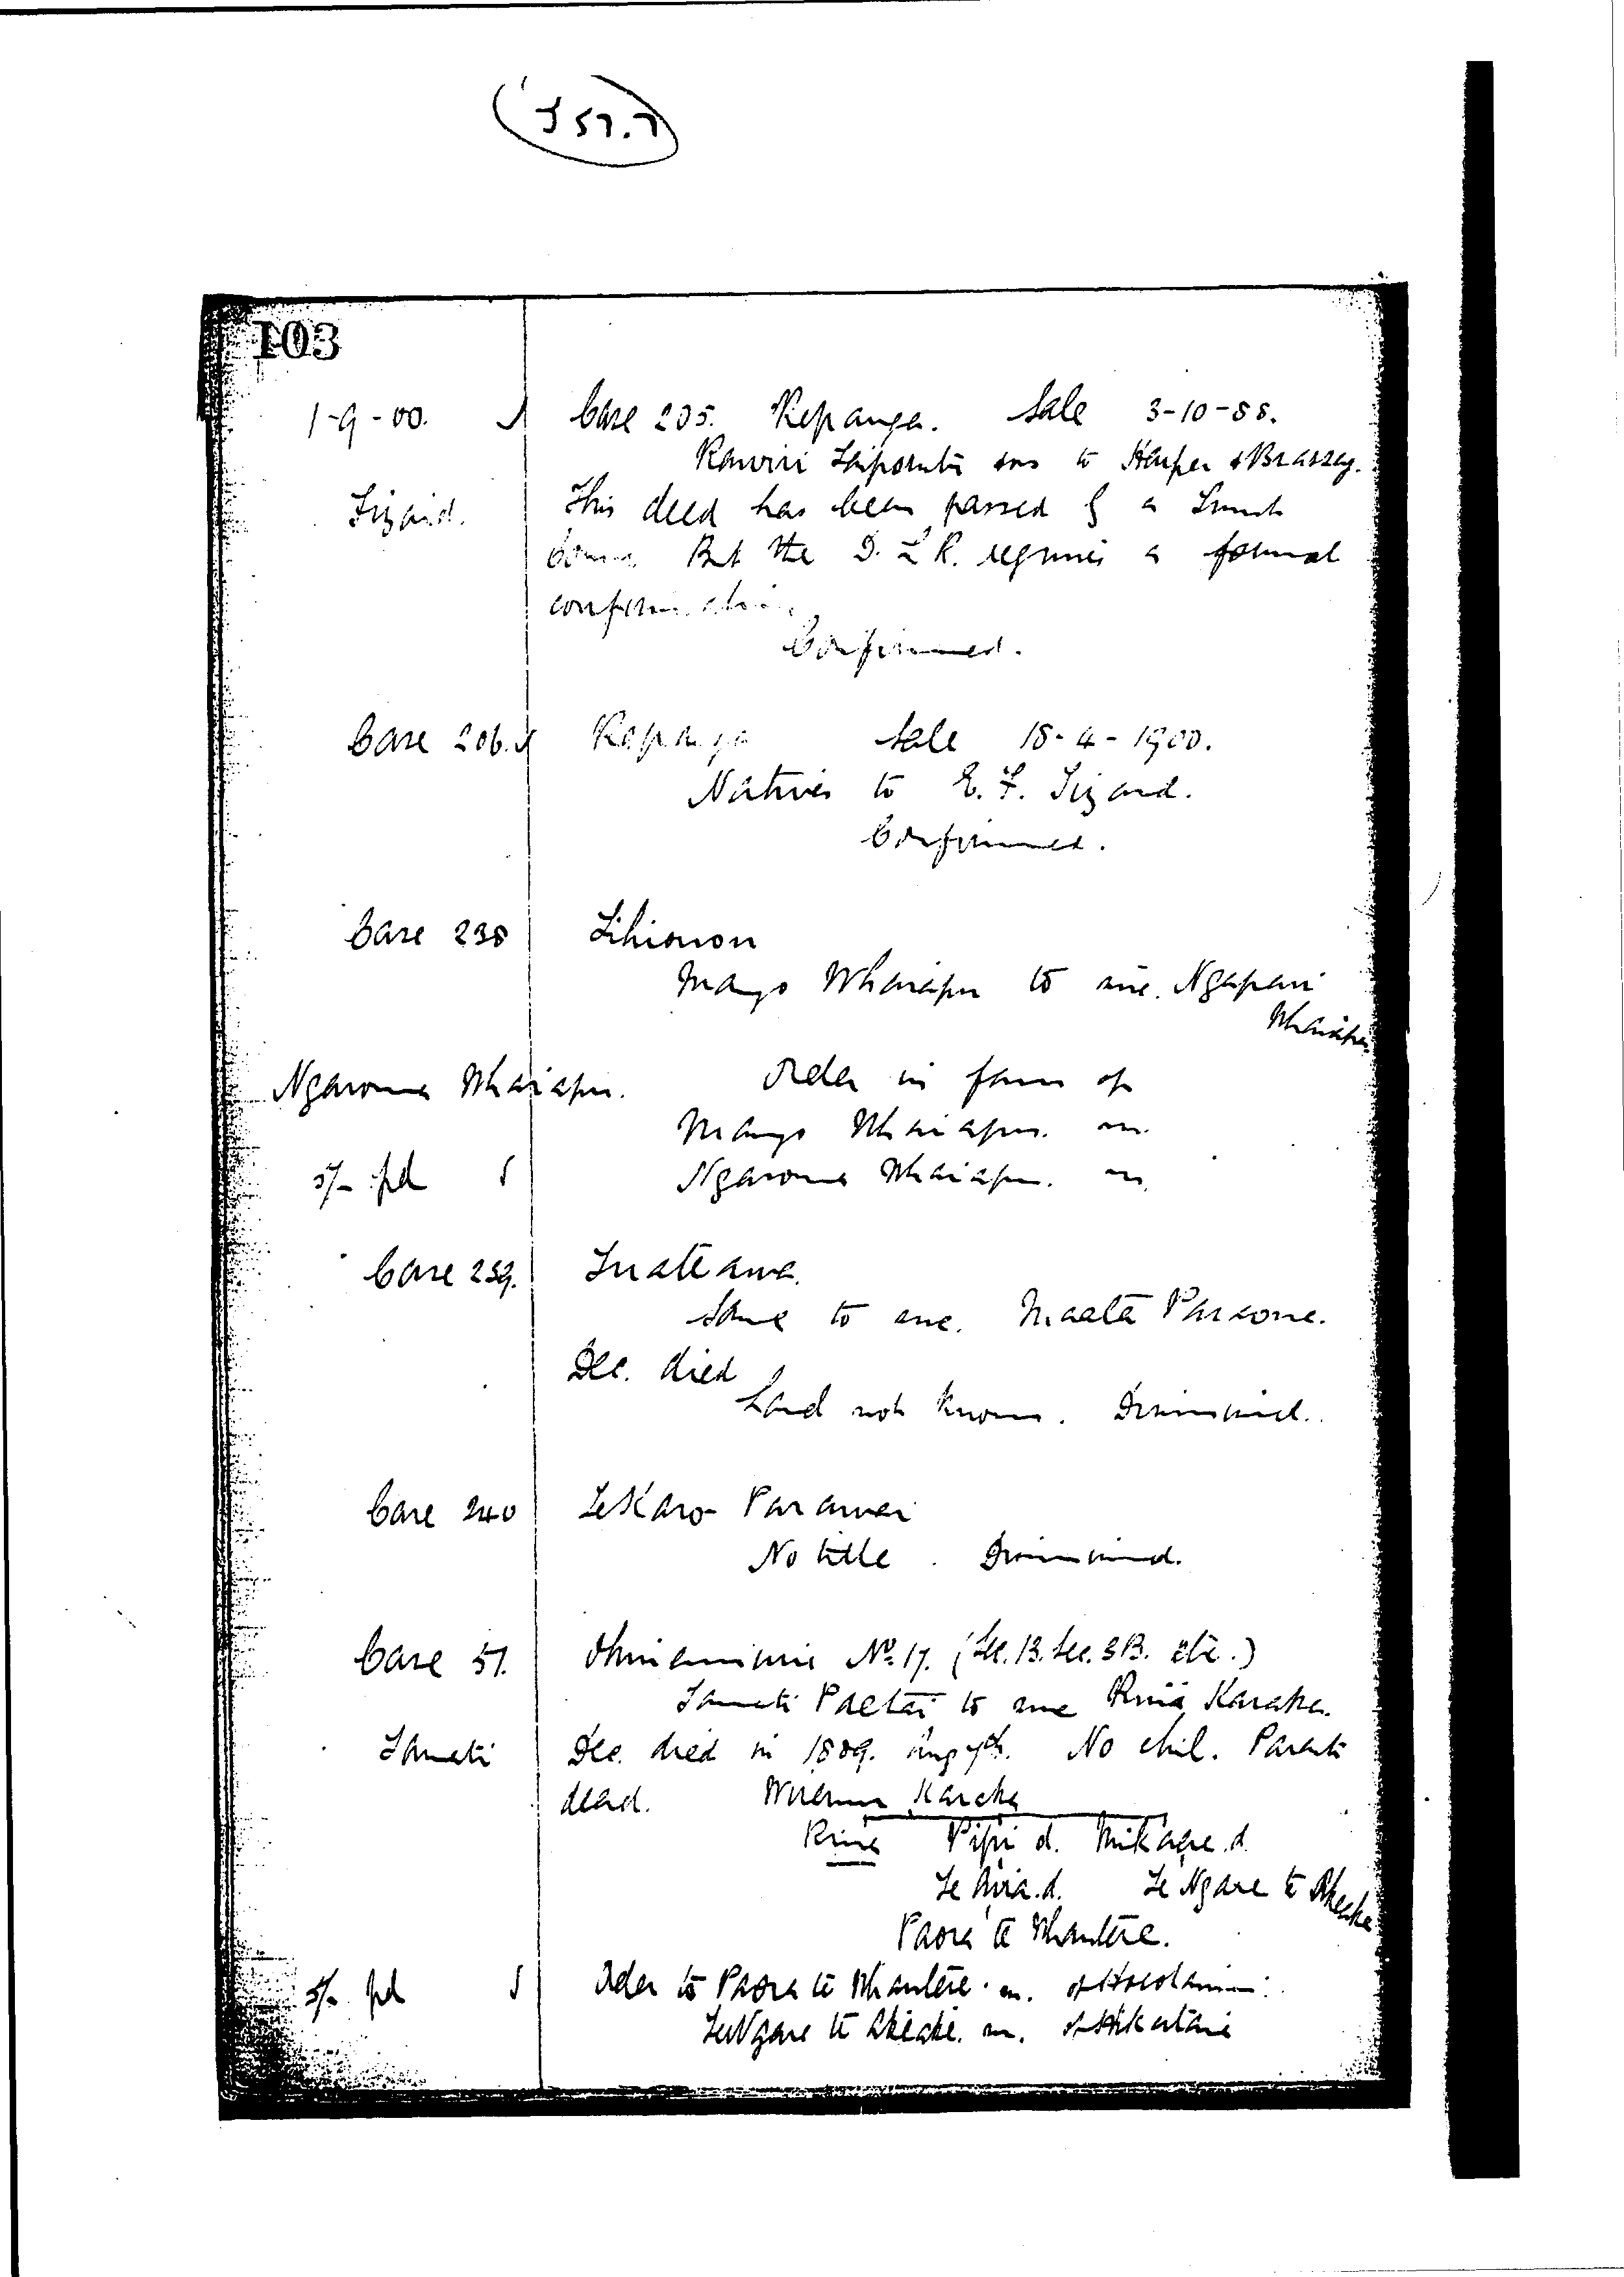 J 57.7
103
1-9-00. Case 205. Repanga. Sale 3-10-88.
Rawiri Taiporutu ors to Harper & Brassey.
Tizard. This deed has been passed by a Trust
Comr. But the D. L. R. requires a formal
confirmation.
Confirmed.
Case 206. Repanga Sale 18-4-1900.
Natives to E. F. Tizard.
Confirmed.
Case 238
Mango Whaiapu to sue. Ngapari
Whaiapu
Ngaroma Whaiapu. Order in favour of
Mango Whaiapu. m.
5/- pd Ngaroma Whaiapu. m.
Case 239. Tuateawa.
Same to sue. Maata Paraone.
Dec. died
Land not known. Dismissed.
Case 240 Te Karo-Parawai
No title. Dismissed.
Case 57. Ohinemuri No. 17. (Sec. 13. Sec. 3B. etc.)
Tameti Paetai to sue Karaka.
Tameti Dec. died in 1889. No chil. Parents
dead. Wirema Karaka
Pipi d. Mikaere. d.
Te Aira. d. Te Ngare te Akeake
Paora te Whautere.
5/- pd Order to Paora te Whautere. m. of
Te Ngare te Akeake. m. of Hikutaia